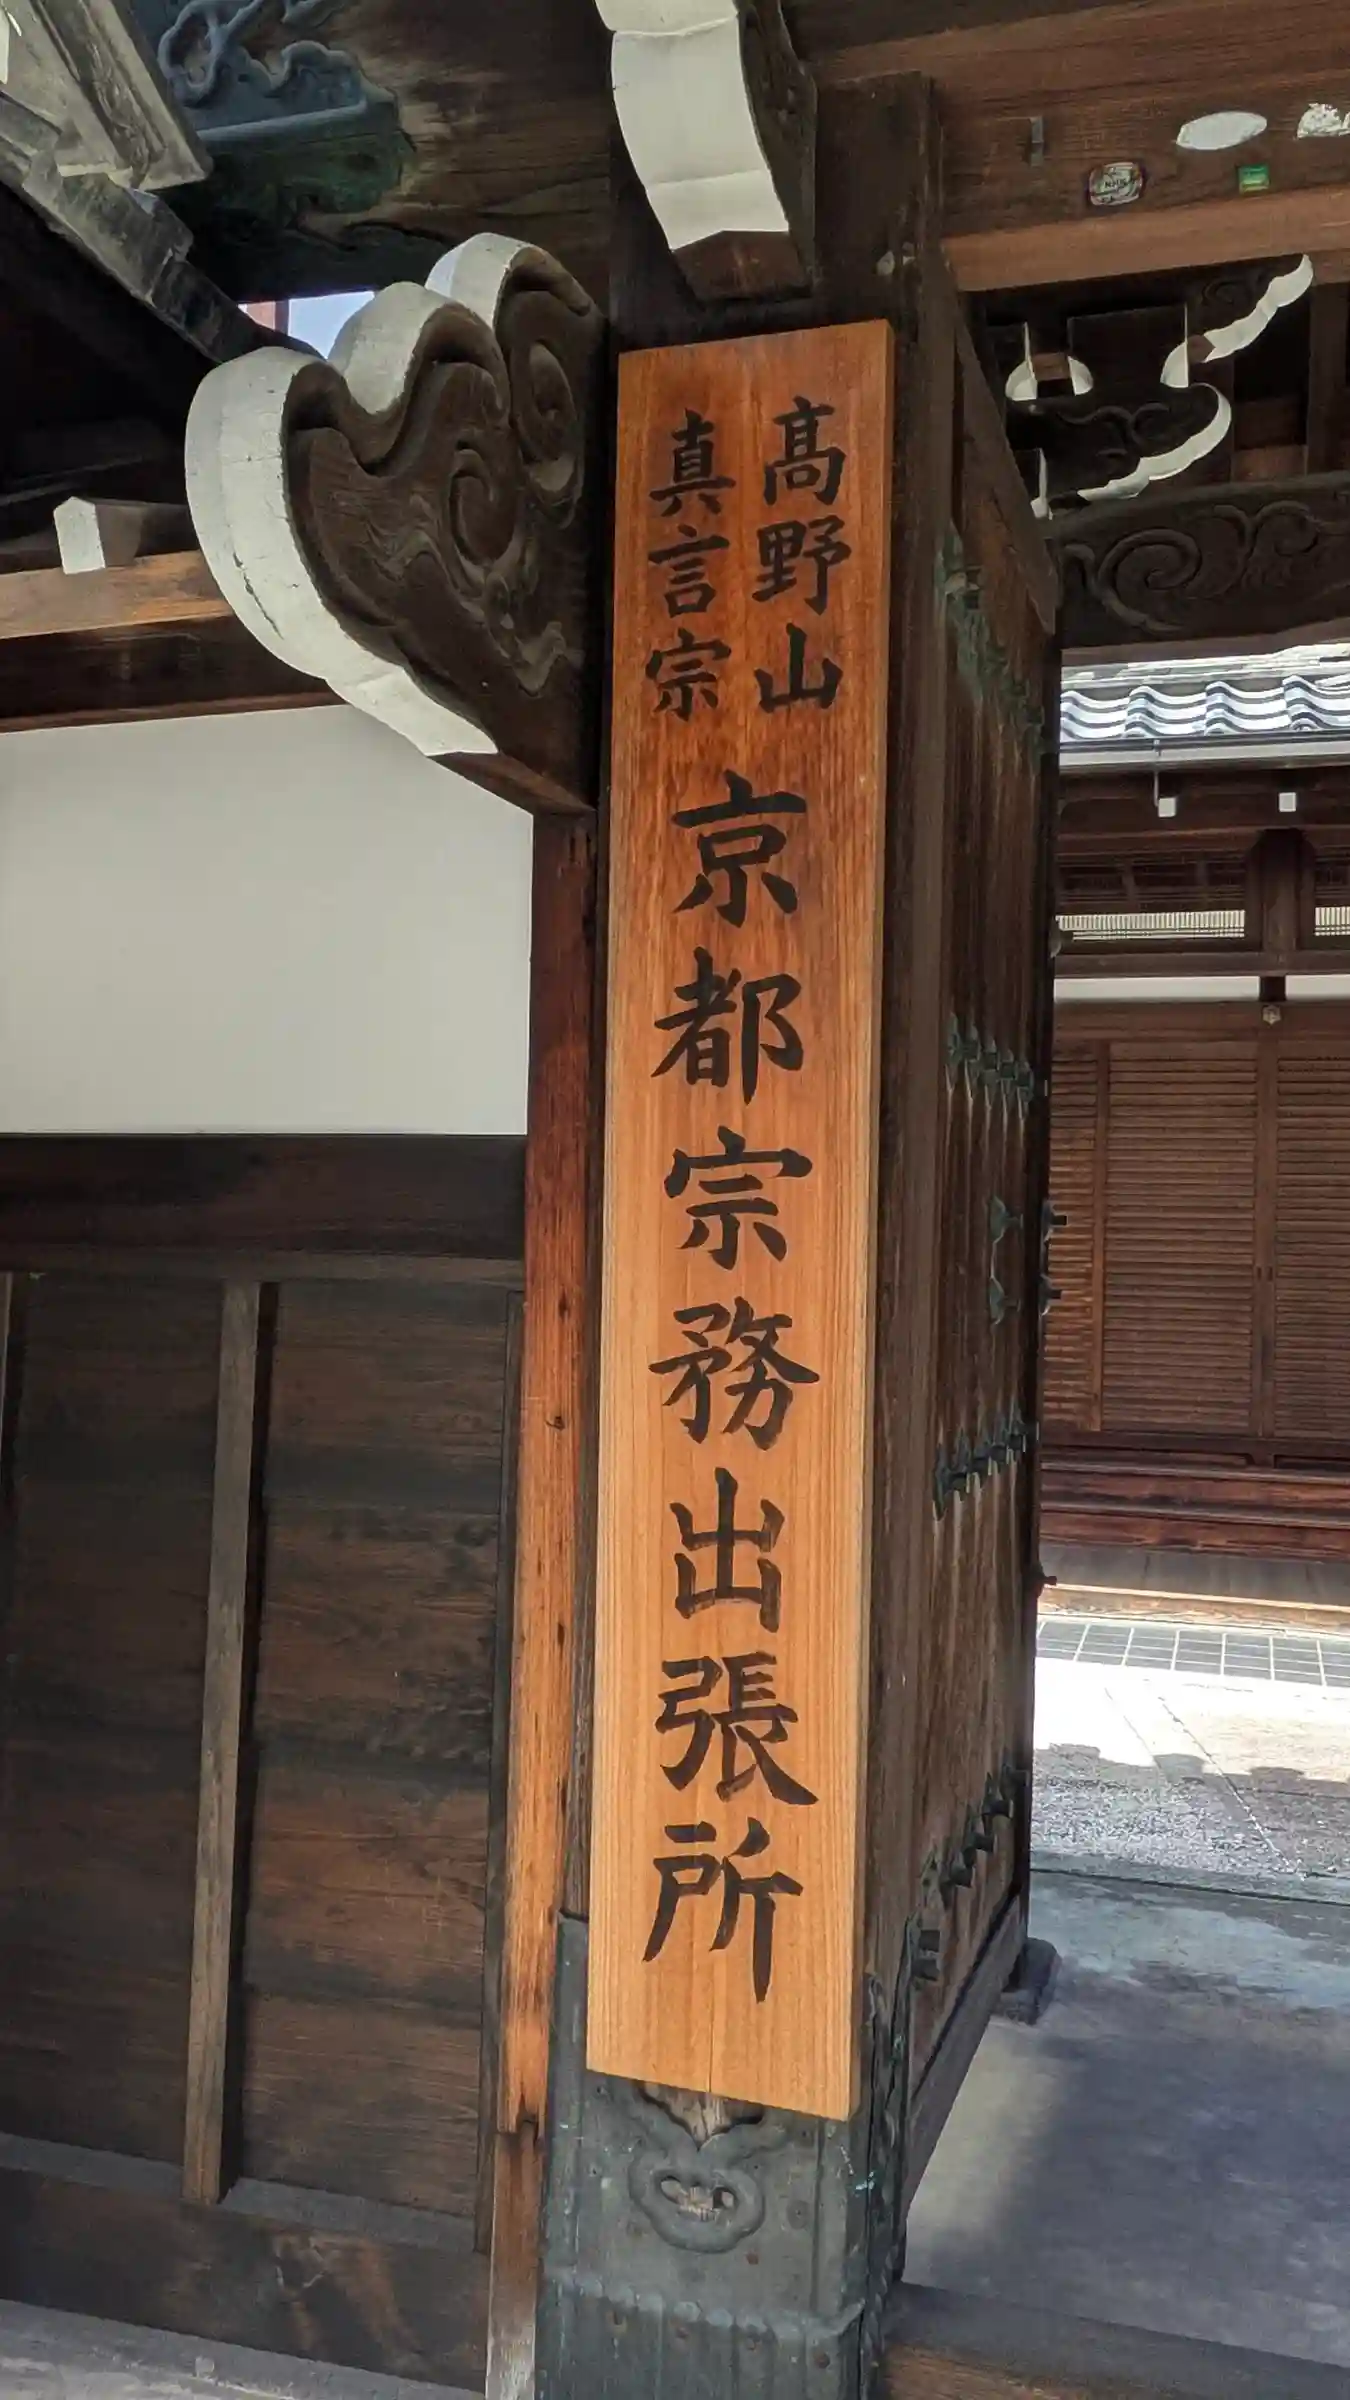 高野山
真言宗
京都宗務出張所
NHK